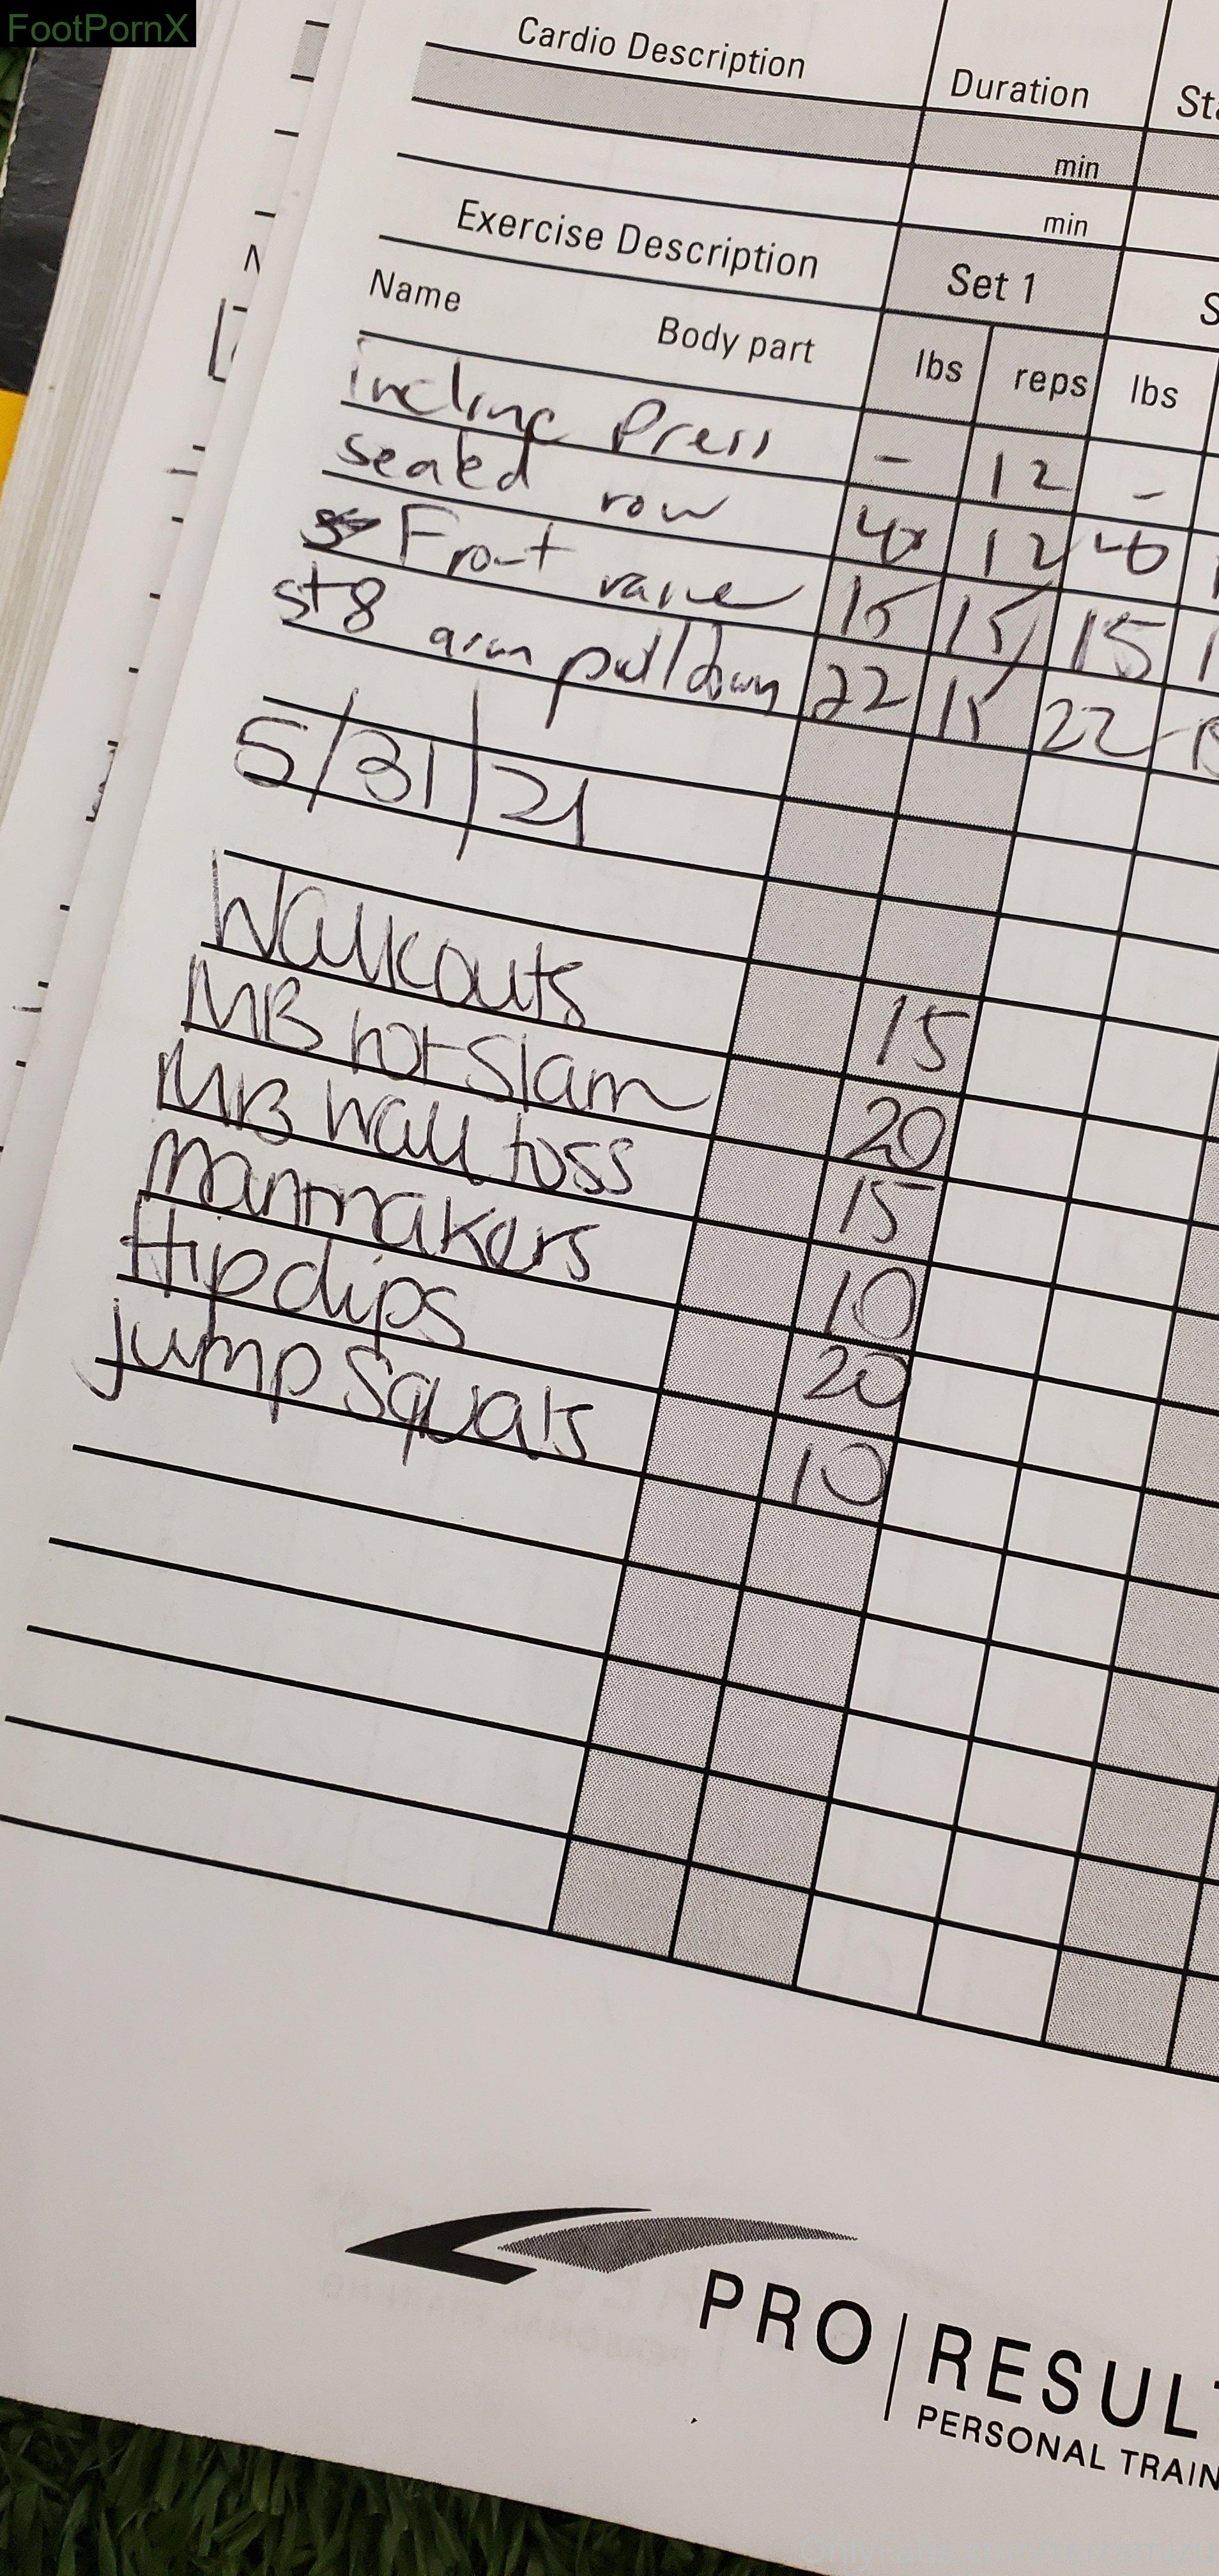 FootPornX
Cardio Description Duration
min
min
Exercise Description Set 1
Name Body part lbs reps lbs
incline Press - 12 -
seated row 40 12 40
Front raise 15 15 15
st8 arm pull down 22 15 22
5/31/21
Walkouts 15
MB rot slam 20
MB wall toss 15
manmakers 10
Hip dips 20
jump squats 10
PRO|RESULT
PERSONAL TRAIN